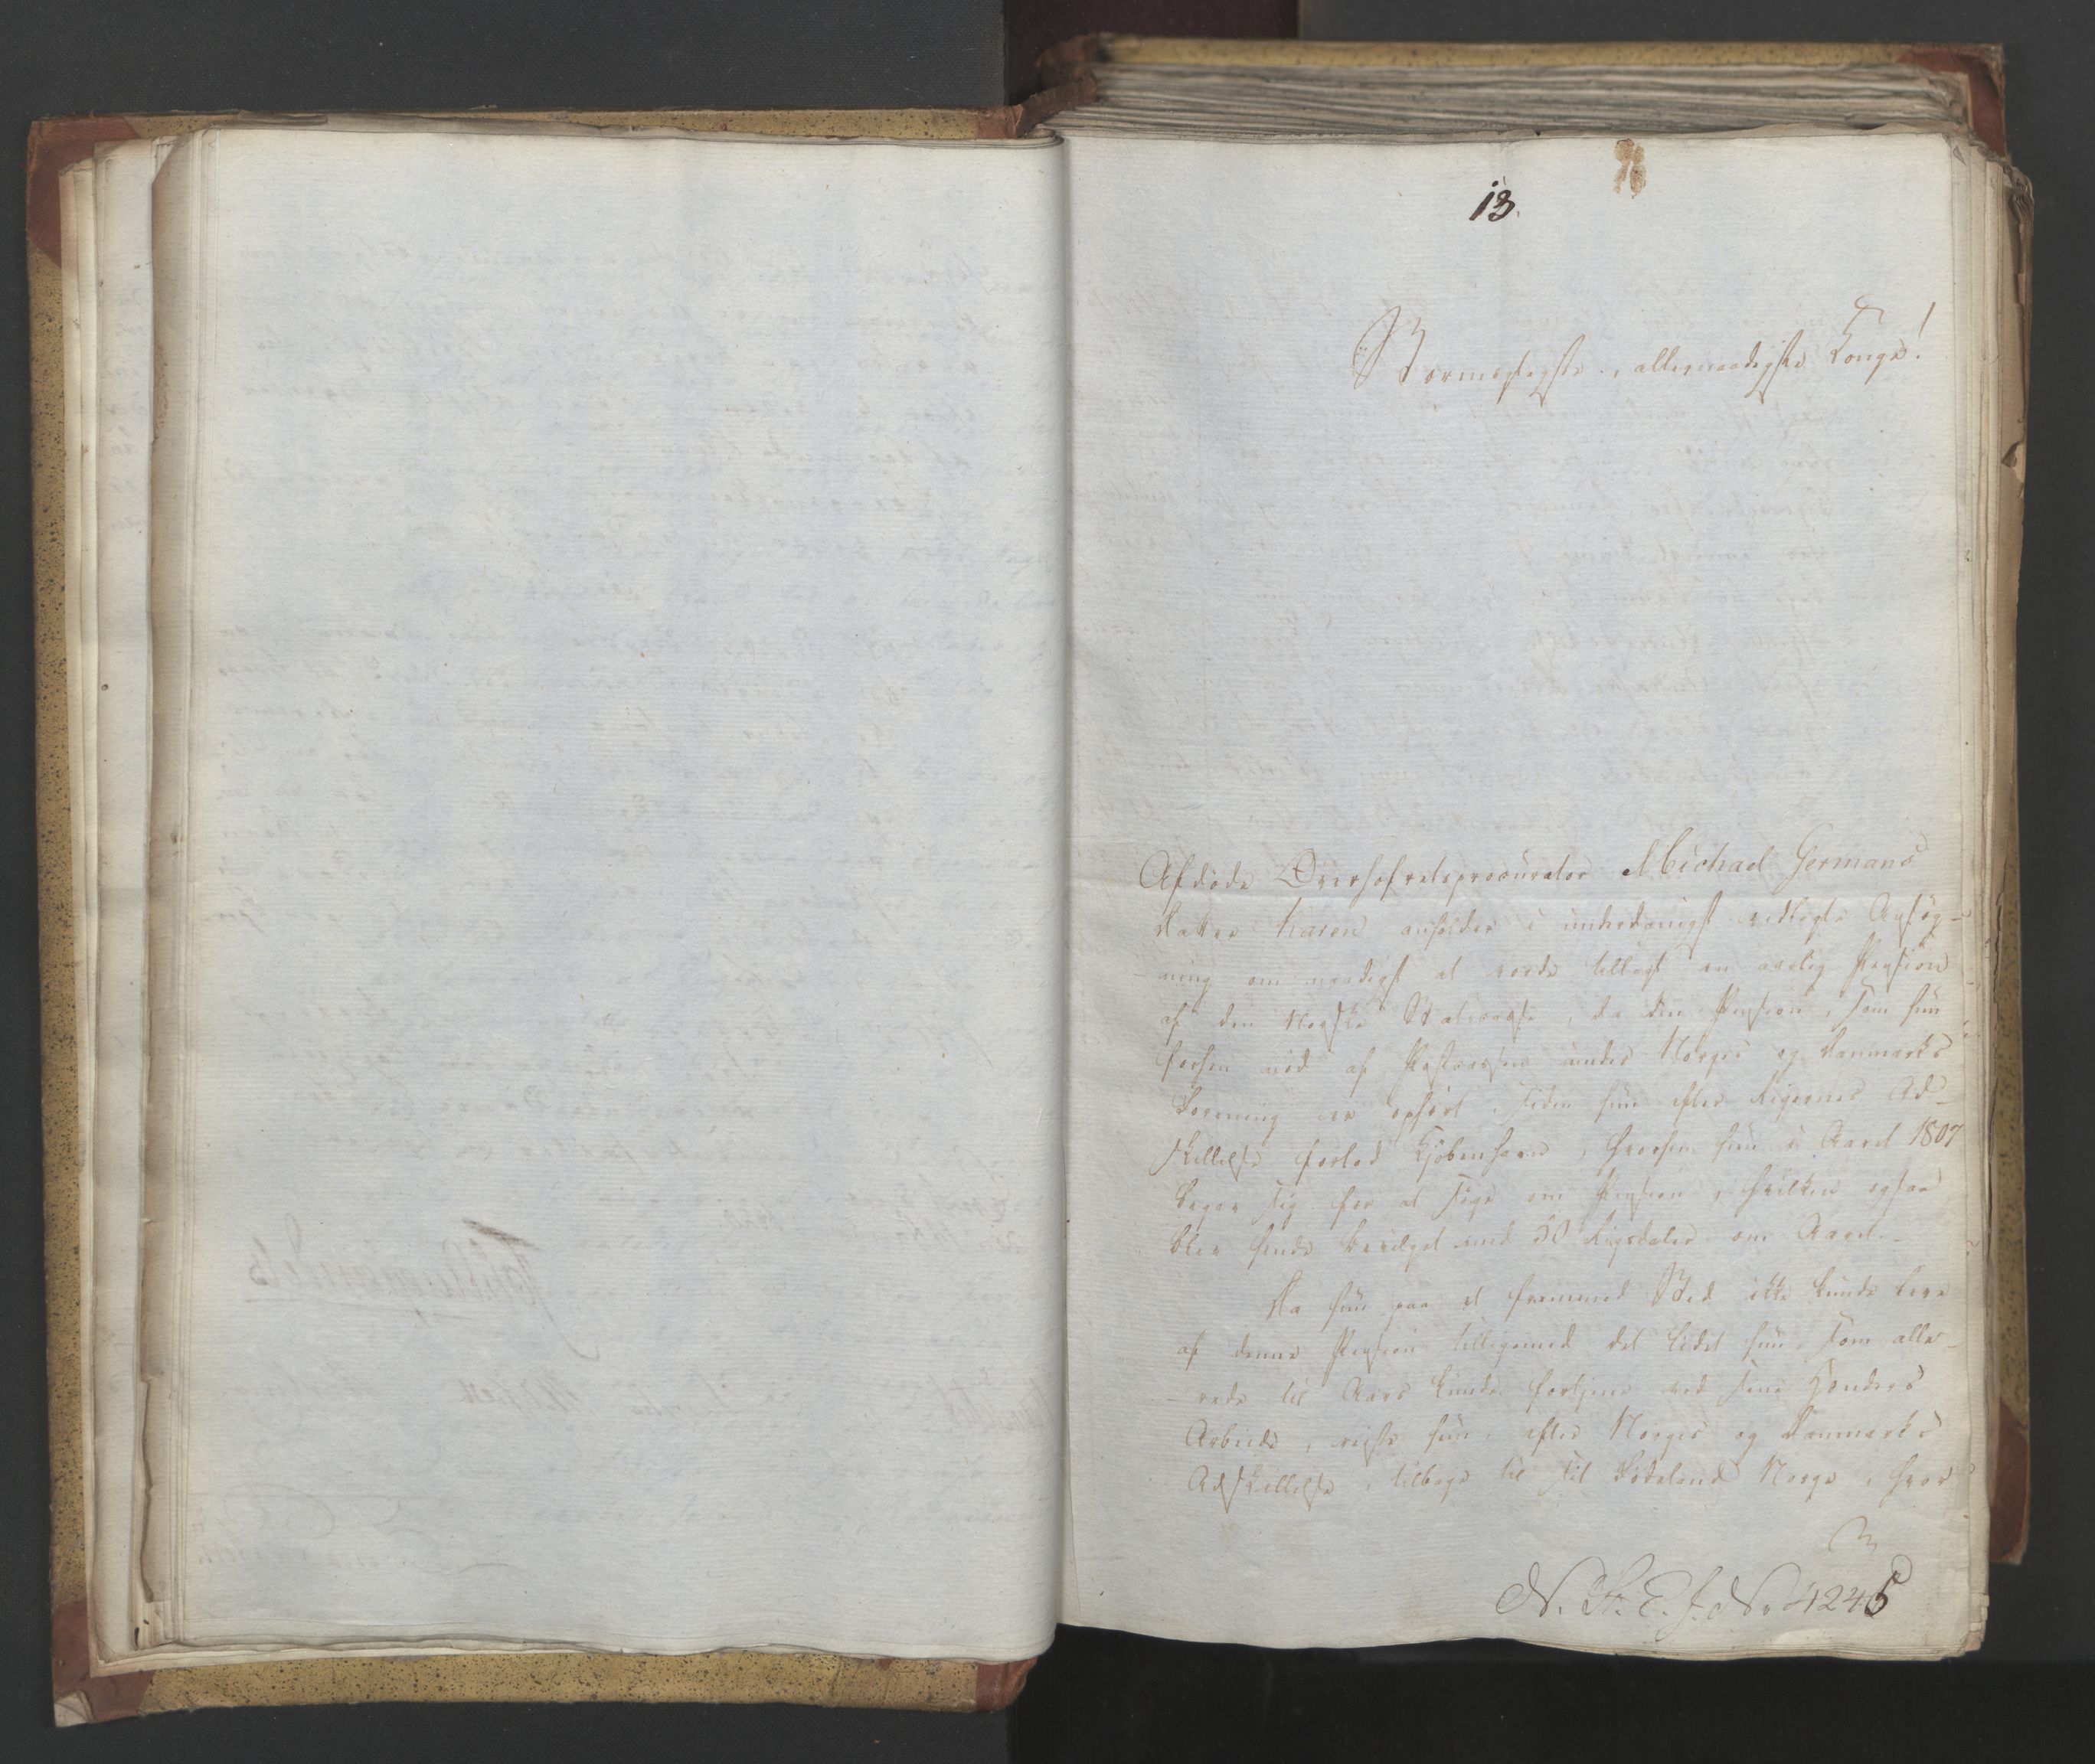 13.
Stormægtigste, allernaadigste Konge!
Afdøde Overhofretsprocurator Michael Germans
Datter Karen anholder i underdanigst vedlagte Ansøg-
ning om naadigst at vorde tillagt en aarlig Pension
af den Norske Statscasse, da den Pension, som hun
forhen nød af Postcassen under Norges og Danmarks
Forening er ophørt, siden hun efter Rigernes Ad-
skillelse forlod Kjøbenhavn, hvorhen hun i Aaret 1807
begav sig for at søge om Pension, hvilken ogsaa
blev hende bevilget med 50 Rigsdaler om Aaret.
Da hun paa et fremmed Sted ikke kunde leve
af denne Pension tilligemed det lidet hun, som alle-
rede til Aars kunde fortjene ved sine Hænders
Arbeide, reiste hun, efter Norges og Danmarks
Adskillelse, tilbage til sit Fødeland Norge, hvor
N. St. E. J. No 4246